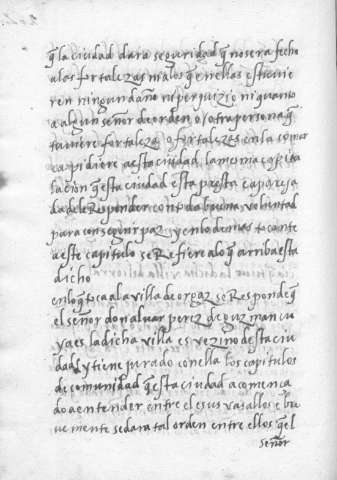 q̃ la ciudad dara seguridad q̃ no sera fecho
a las fortalezas ni a los q̃ en ellas estuvie
ren ningun daño ni perjuizio ni quanto
a algun señor de orden o otra persona q̃
tuviere fortaleza o fortalezas en la comar
ca pidiere a esta ciudad la misma capitu
lacion q̃ esta ciudad esta presta e apareja
da de Responder con toda buena voluntad
para conseguir paz y en lo demas tocante
a este capitulo se Refiere a lo q̃ arriba esta
dicho
en lo q̃ toca a la villa de orgaz se Responde q̃
el señor don alvar perez de guzman cu
ya es la dicha villa es vezino desta ciu
dad y tiene jurado con ella los capitulos
de comunidad q̃ esta ciudad a comença
do a entender entre el e sus vasallos e bre
ve mente se dara tal orden entre ellos q̃ el
señor